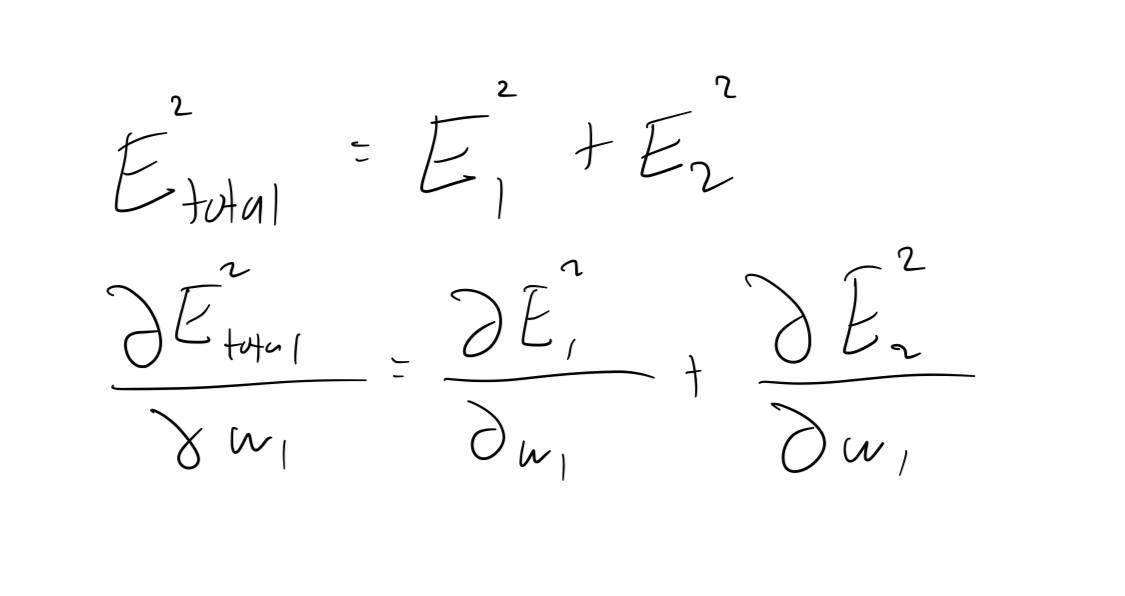 E²_total = E₁² + E₂²
∂E²_total/∂w₁ = ∂E₁²/∂w₁ + ∂E₂²/∂w₁